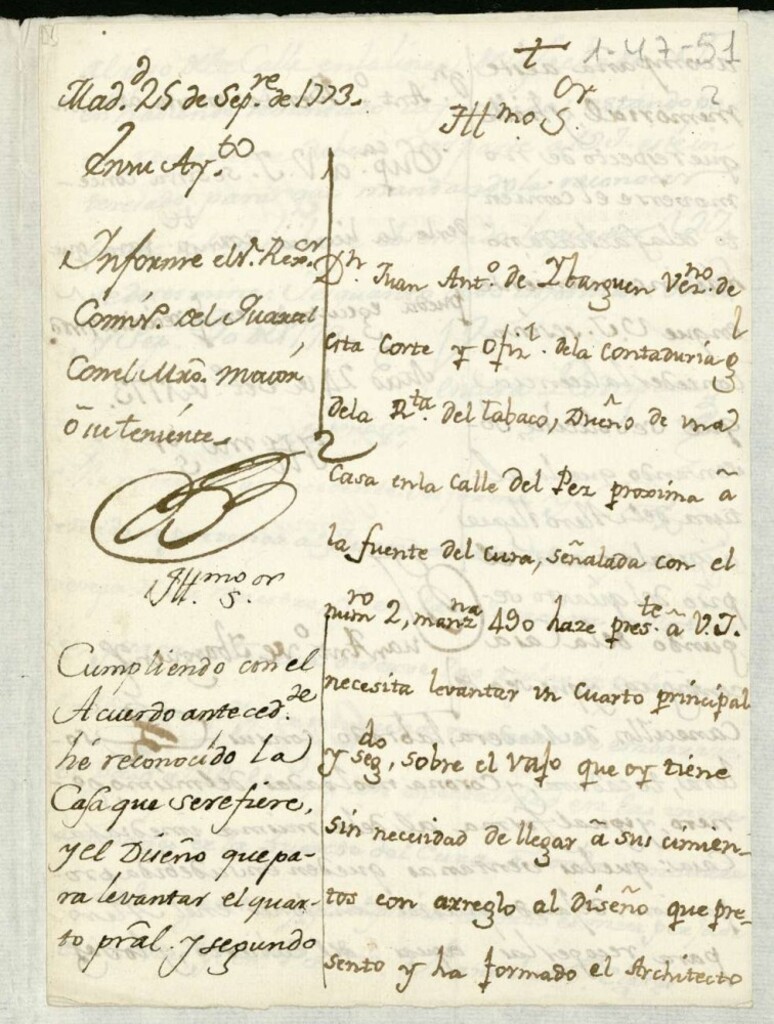 1-47-51
2
+
Yll.mo S.or
Mad.d 25 de Sep.re de 1773.
En su Ay.to
Informe el S.r Rex.or
Comis.o del Quartel
Con el Mro. mayor,
ó su teniente.
Yll.mo S.or
Cumpliendo con el
Acuerdo anteced.de
hé reconocido la
Casa que serefiere,
y el Diseño que pa-
ra levantar el quar-
to pral. y segundo
D.n Juan Ant.o de Ybarguen Vez.no de
esta Corte y ofiz.l dela Contaduria g.l
dela R.ta del tabaco, Dueño de una
Casa enla Calle del Pez proxima â
la fuente del Cura, señalada con el
num.ro 2, manz.na 490 haze pres.te â V.I.
necesita levantar un Cuarto principal
y seg.do, sobre el vajo que oy tiene
sin necesidad de llegar â sus cimien-
tos con arreglo al Diseño que pre-
sento y ha formado el Architecto